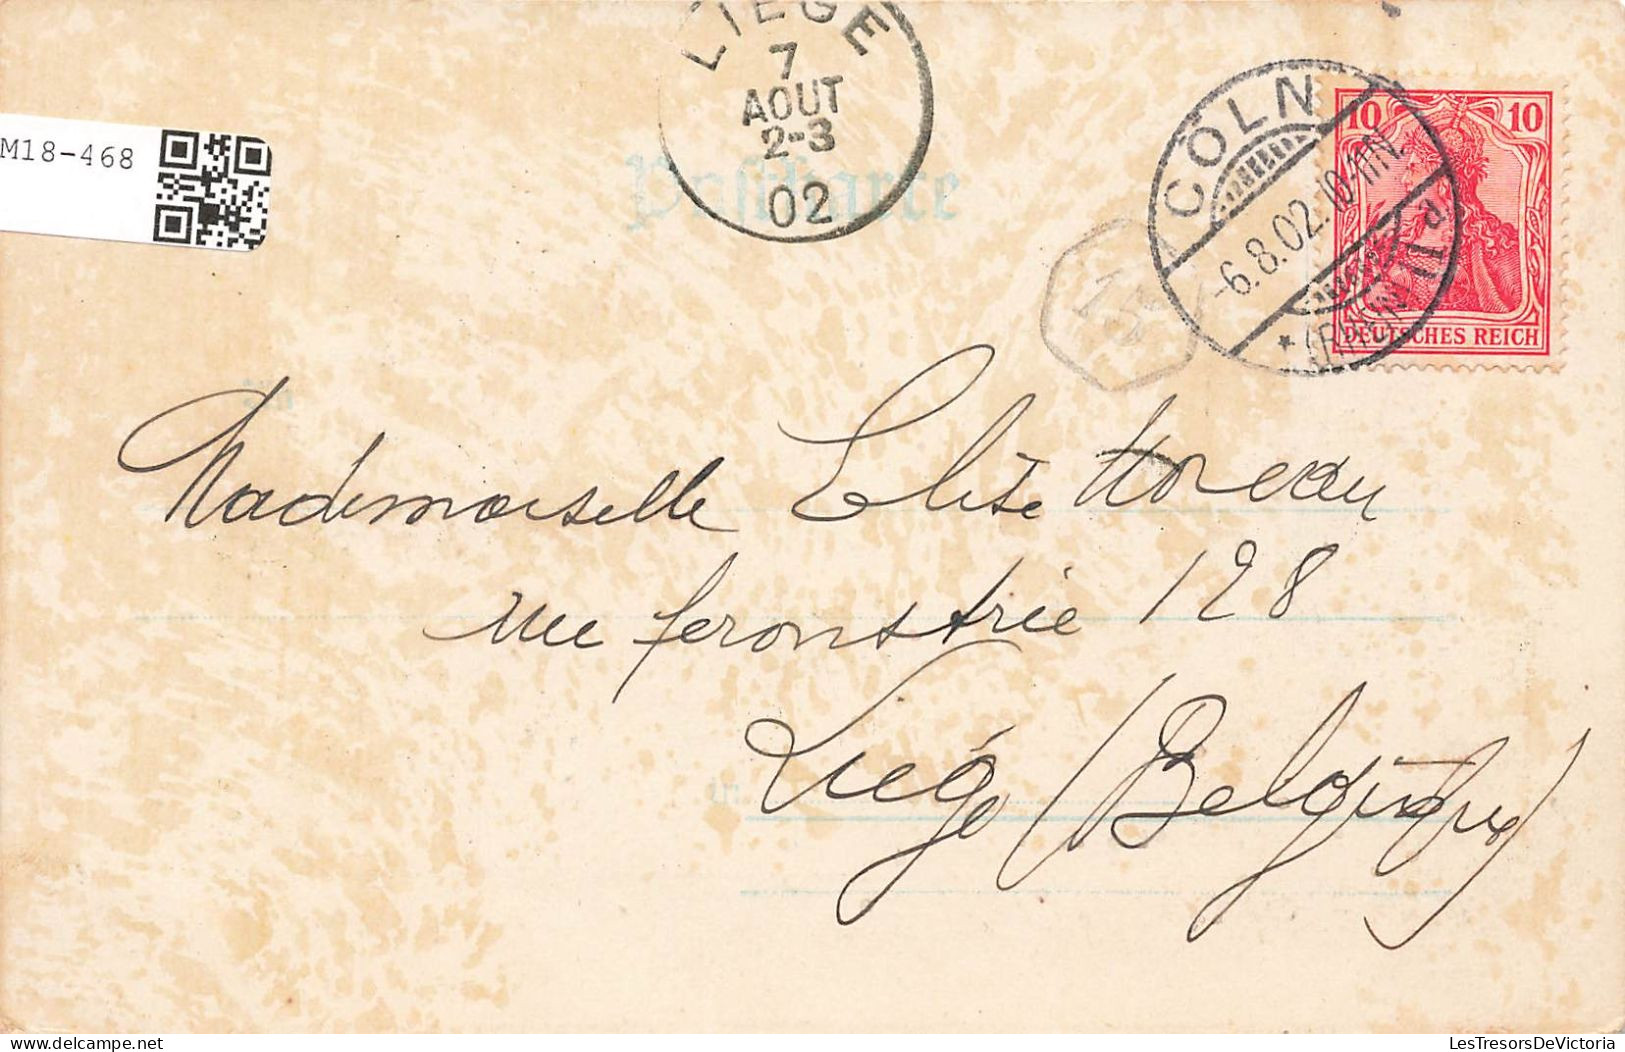 LIEGE
7
AOUT
2-3
02
CÖLN
-6.8.02.10-11N.
* (RHEIN)
10 10
DEUTSCHES REICH
M18-468
Postkarte
15
An
Mademoiselle Elise Moreau
rue feronstrée 128
in
Liége (Belgique)
LesTresorsDeVictoria